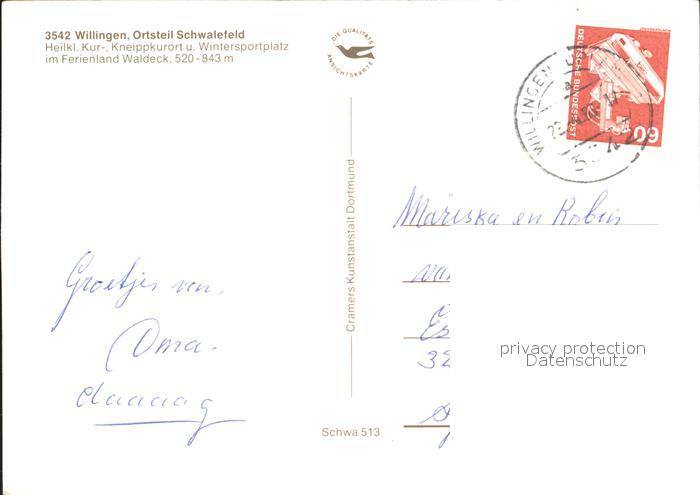 3542 Willingen, Ortsteil Schwalefeld
Heilkl. Kur-, Kneippkurort u. Wintersportplatz
im Ferienland Waldeck, 520-843 m
DIE QUALITÄTS
ANSICHTSKARTE
DEUTSCHE BUNDESPOST
60
WILLINGEN
Mariska en Robin
van
Es
32
privacy protection
Datenschutz
Groetjes van,
Oma.
daaaag
Cramers Kunstanstalt Dortmund
Schwa 513